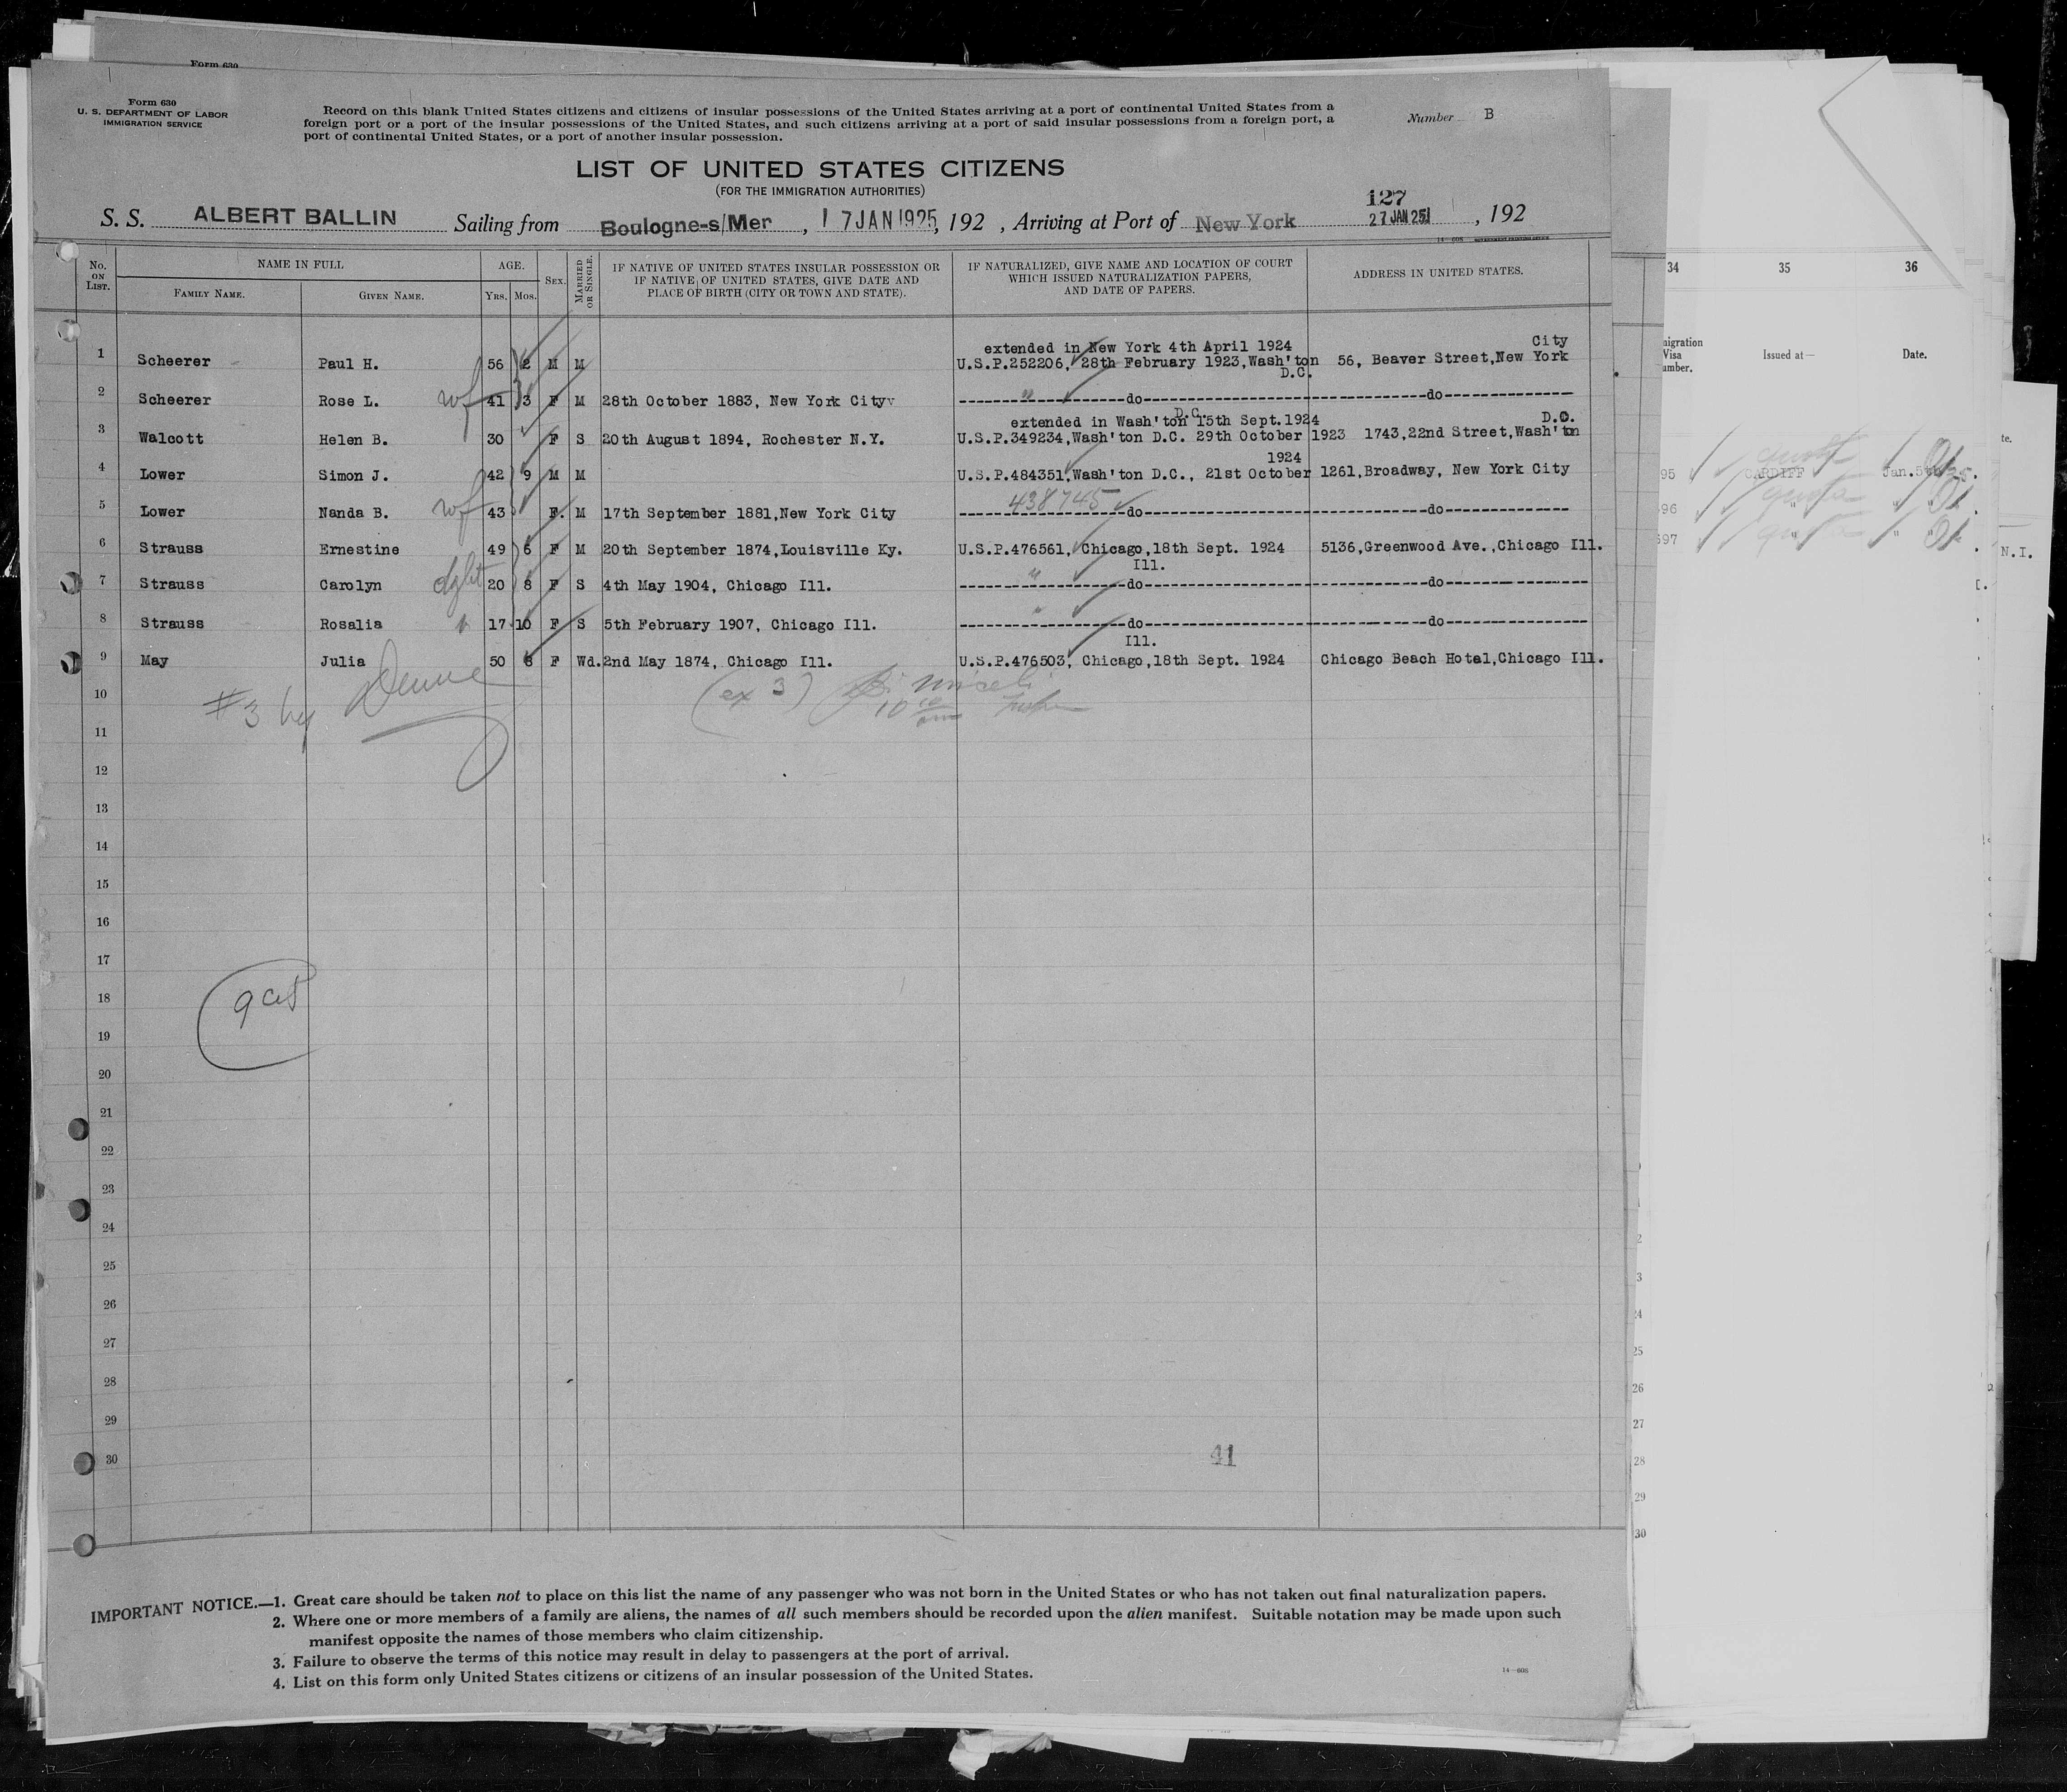 Form 630
Form 630
U. S. DEPARTMENT OF LABOR
IMMIGRATION SERVICE
Record on this blank United States citizens and citizens of insular possessions of the United States arriving at a port of continental United States from a
foreign port or a port of the insular possessions of the United States, and such citizens arriving at a port of said insular possessions from a foreign port, a
port of continental United States, or a port of another insular possession.
Number B
LIST OF UNITED STATES CITIZENS
(FOR THE IMMIGRATION AUTHORITIES)
127
S. S. ALBERT BALLIN Sailing from Boulogne-s/Mer, 17 JAN 1925, 192 , Arriving at Port of New York 27 JAN 25, 192
14—608 GOVERNMENT PRINTING OFFICE
No. ON LIST. NAME IN FULL AGE. SEX. MARRIED OR SINGLE. IF NATIVE OF UNITED STATES INSULAR POSSESSION OR IF NATIVE OF UNITED STATES, GIVE DATE AND PLACE OF BIRTH (CITY OR TOWN AND STATE). IF NATURALIZED, GIVE NAME AND LOCATION OF COURT WHICH ISSUED NATURALIZATION PAPERS, AND DATE OF PAPERS. ADDRESS IN UNITED STATES.
FAMILY NAME. GIVEN NAME. YRS. MOS.
extended in New York 4th April 1924 City
1 Scheerer Paul H. 56 2 M M U.S.P.252206, 28th February 1923,Wash'ton D.C. 56, Beaver Street,New York
2 Scheerer Rose L. wf 41 3 F M 28th October 1883, New York City " do do
extended in Wash'ton D.C. 15th Sept.1924 D.C.
3 Walcott Helen B. 30 F S 20th August 1894, Rochester N.Y. U.S.P.349234,Wash'ton D.C. 29th October 1923 1743,22nd Street,Wash'ton
1924
4 Lower Simon J. 42 9 M M U.S.P.484351,Wash'ton D.C., 21st October 1261,Broadway, New York City
5 Lower Nanda B. wf 43 F. M 17th September 1881,New York City 438745 do do
6 Strauss Ernestine 49 6 F M 20th September 1874,Louisville Ky. U.S.P.476561, Chicago,18th Sept. 1924 5136,Greenwood Ave.,Chicago Ill.
Ill.
7 Strauss Carolyn dght 20 8 F S 4th May 1904, Chicago Ill. " do do
8 Strauss Rosalia " 17 10 F S 5th February 1907, Chicago Ill. " do do
Ill.
9 May Julia 50 8 F Wd. 2nd May 1874, Chicago Ill. U.S.P.476503, Chicago,18th Sept. 1924 Chicago Beach Hotel,Chicago Ill.
10
#3 by (ex 3)
11
12
13
14
15
16
17
18
19
20
21
22
23
24
25
26
27
28
29
30
41
IMPORTANT NOTICE.—1. Great care should be taken not to place on this list the name of any passenger who was not born in the United States or who has not taken out final naturalization papers.
2. Where one or more members of a family are aliens, the names of all such members should be recorded upon the alien manifest. Suitable notation may be made upon such
manifest opposite the names of those members who claim citizenship.
3. Failure to observe the terms of this notice may result in delay to passengers at the port of arrival.
4. List on this form only United States citizens or citizens of an insular possession of the United States.
14—608
34 35 36
Issued at— Date.
95 CARDIFF Jan.5th
96 quota " "
quota " "
N.I.
25
26
27
28
29
30